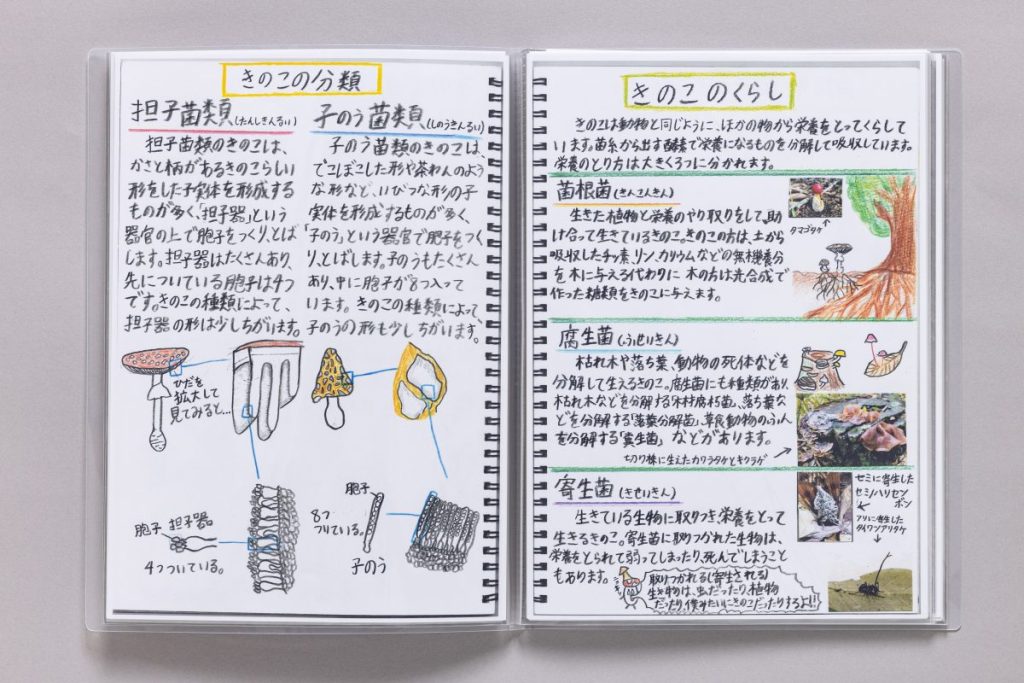 きのこの分類
担子菌類(たんしきんるい)
担子菌類のきのこは、
かさと柄があるきのこらしい
形をした子実体を形成する
ものが多く、「担子器」という
器官の上で胞子をつくり、とば
します。担子器はたくさんあり、
先についている胞子は4つ
です。きのこの種類によって、
担子器の形は少しちがいます。
子のう菌類(しのうきんるい)
子のう菌類のきのこは、
でこぼこした形や茶わんのよう
な形など、いびつな形の子
実体を形成するものが多く、
「子のう」という器官で胞子をつく
り、とばします。子のうもたくさん
あり、中に胞子が8つ入って
います。きのこの種類によって
子のうの形も少しちがいます。
ひだを
拡大して
見てみると…
胞子 担子器
4つついている。
胞子
8つ
ついている。
子のう
きのこのくらし
きのこは動物と同じように、ほかの物から栄養をとってくらして
います。菌糸から出す酵素で栄養になるものを分解して吸収しています。
栄養のとり方は大きく3つに分かれます。
菌根菌(きんこんきん)
生きた植物と栄養のやり取りをして、助
け合って生きているきのこ。きのこの方は、土から
吸収したチッ素、リン、カリウムなどの無機養分
を木に与える代わりに 木の方は光合成で
作った糖類をきのこに与えます。
タマゴタケ
腐生菌(ふせいきん)
枯れ木や落ち葉、動物の死体などを
分解して生えるきのこ。腐生菌にも種類があり、
枯れ木などを分解する「木材腐朽菌」、落ち葉な
どを分解する「落葉分解菌」、草食動物のふん
を分解する「糞生菌」などがあります。
切り株に生えたカワラタケとキクラゲ
寄生菌(きせいきん)
生きている生物に取りつき、栄養をとって
生きるきのこ。寄生菌に取りつかれた生物は、
栄養をとられて弱ってしまったり、死んでしまうこと
もあります。
セミに寄生した
セミノハリセン
ボン
アリに寄生した
タイワンアリタケ
取りつかれる(寄生される)
生き物は、虫だったり、植物
だったり、僕みたいにきのこだったりするよ!!